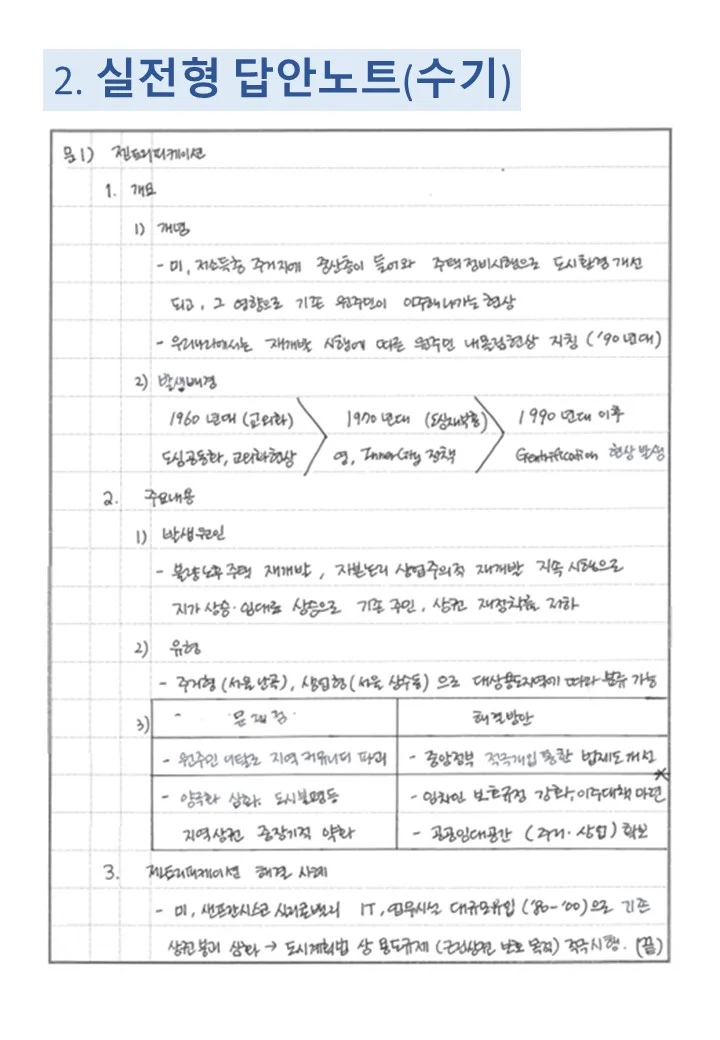 2. 실전형 답안노트(수기)
문1) 젠트리피케이션
1. 개요
1) 개념
- 미, 저소득층 주거지에 중산층이 들어와 주택정비시행으로 도시환경개선
되고, 그 영향으로 기존 원주민이 이주해나가는 현상
- 우리나라에서는 재개발 시행에 따른 원주민 내몰림현상 지칭 ('90년대)
2) 발생배경
1960년대 (교외화) 1970년대 (도심재부흥) 1990년대 이후
도심공동화, 교외화현상 영, Inner City 정책 Gentrification 현상 발생
2. 주요내용
1) 발생원인
- 불량노후주택 재개발, 자본논리 상업주의적 재개발 지속 시행으로
지가상승·임대료 상승으로 기존 주민, 상권 재정착률 저하
2) 유형
- 주거형 (서울 난곡), 상업형 (서울 상수동) 으로 대상용도지역에 따라 분류 가능
3) - 문제점· 해결방안
- 원주민 이탈로 지역 커뮤니티 파괴 - 중앙정부 적극개입 통한 법제도개선
- 양극화 심화, 도시불평등 - 임차인 보호규정 강화, 이주대책 마련
지역상권 중장기적 약화 - 공공임대공간 (주거·상업) 확보
3. 젠트리피케이션 해결 사례
- 미, 샌프란시스코 실리콘밸리 IT, 업무시설 대규모유입 ('80-'00)으로 기존
상권붕괴 심화 → 도시계획법 상 용도규제 (근린상권 보호 목적) 적극시행. (끝)